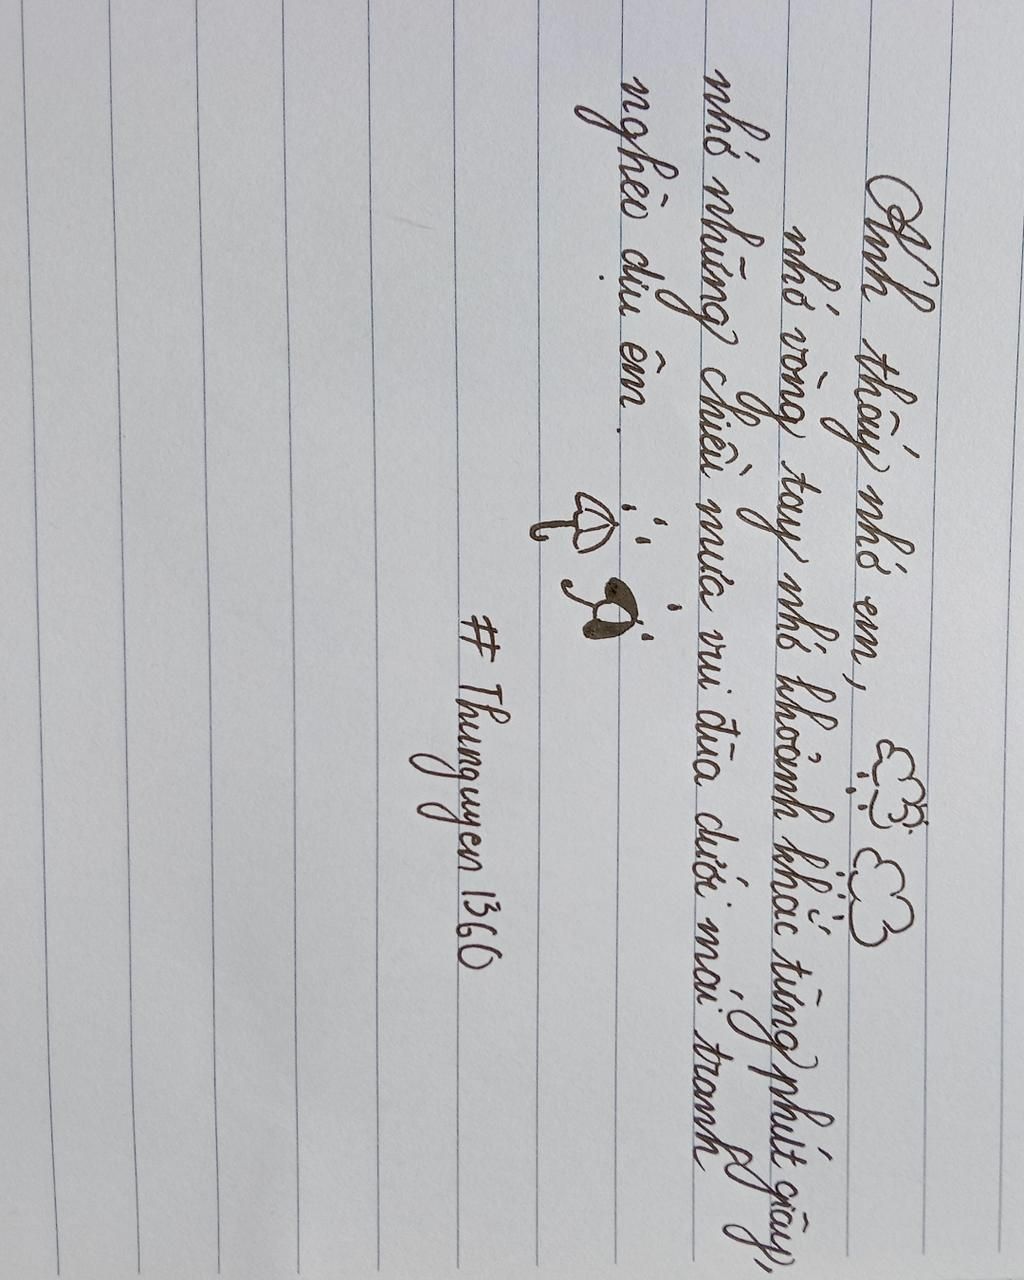 Anh thấy nhớ em,
nhớ vòng tay nhớ khoảnh khắc từng phút giây,
nhớ những chiều mưa vui đùa dưới mái tranh
nghèo dịu êm.
# Thungnguyen 1360